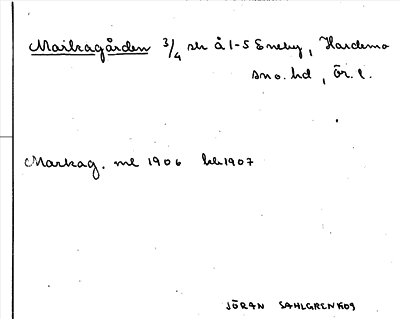 Maikagården 3/4 str å 1-5 Eneby, Hardemo
sn o. hd, Ör. l.
Markag. ml 1906 hb 1907
JÖRAN SAHLGREN 1909